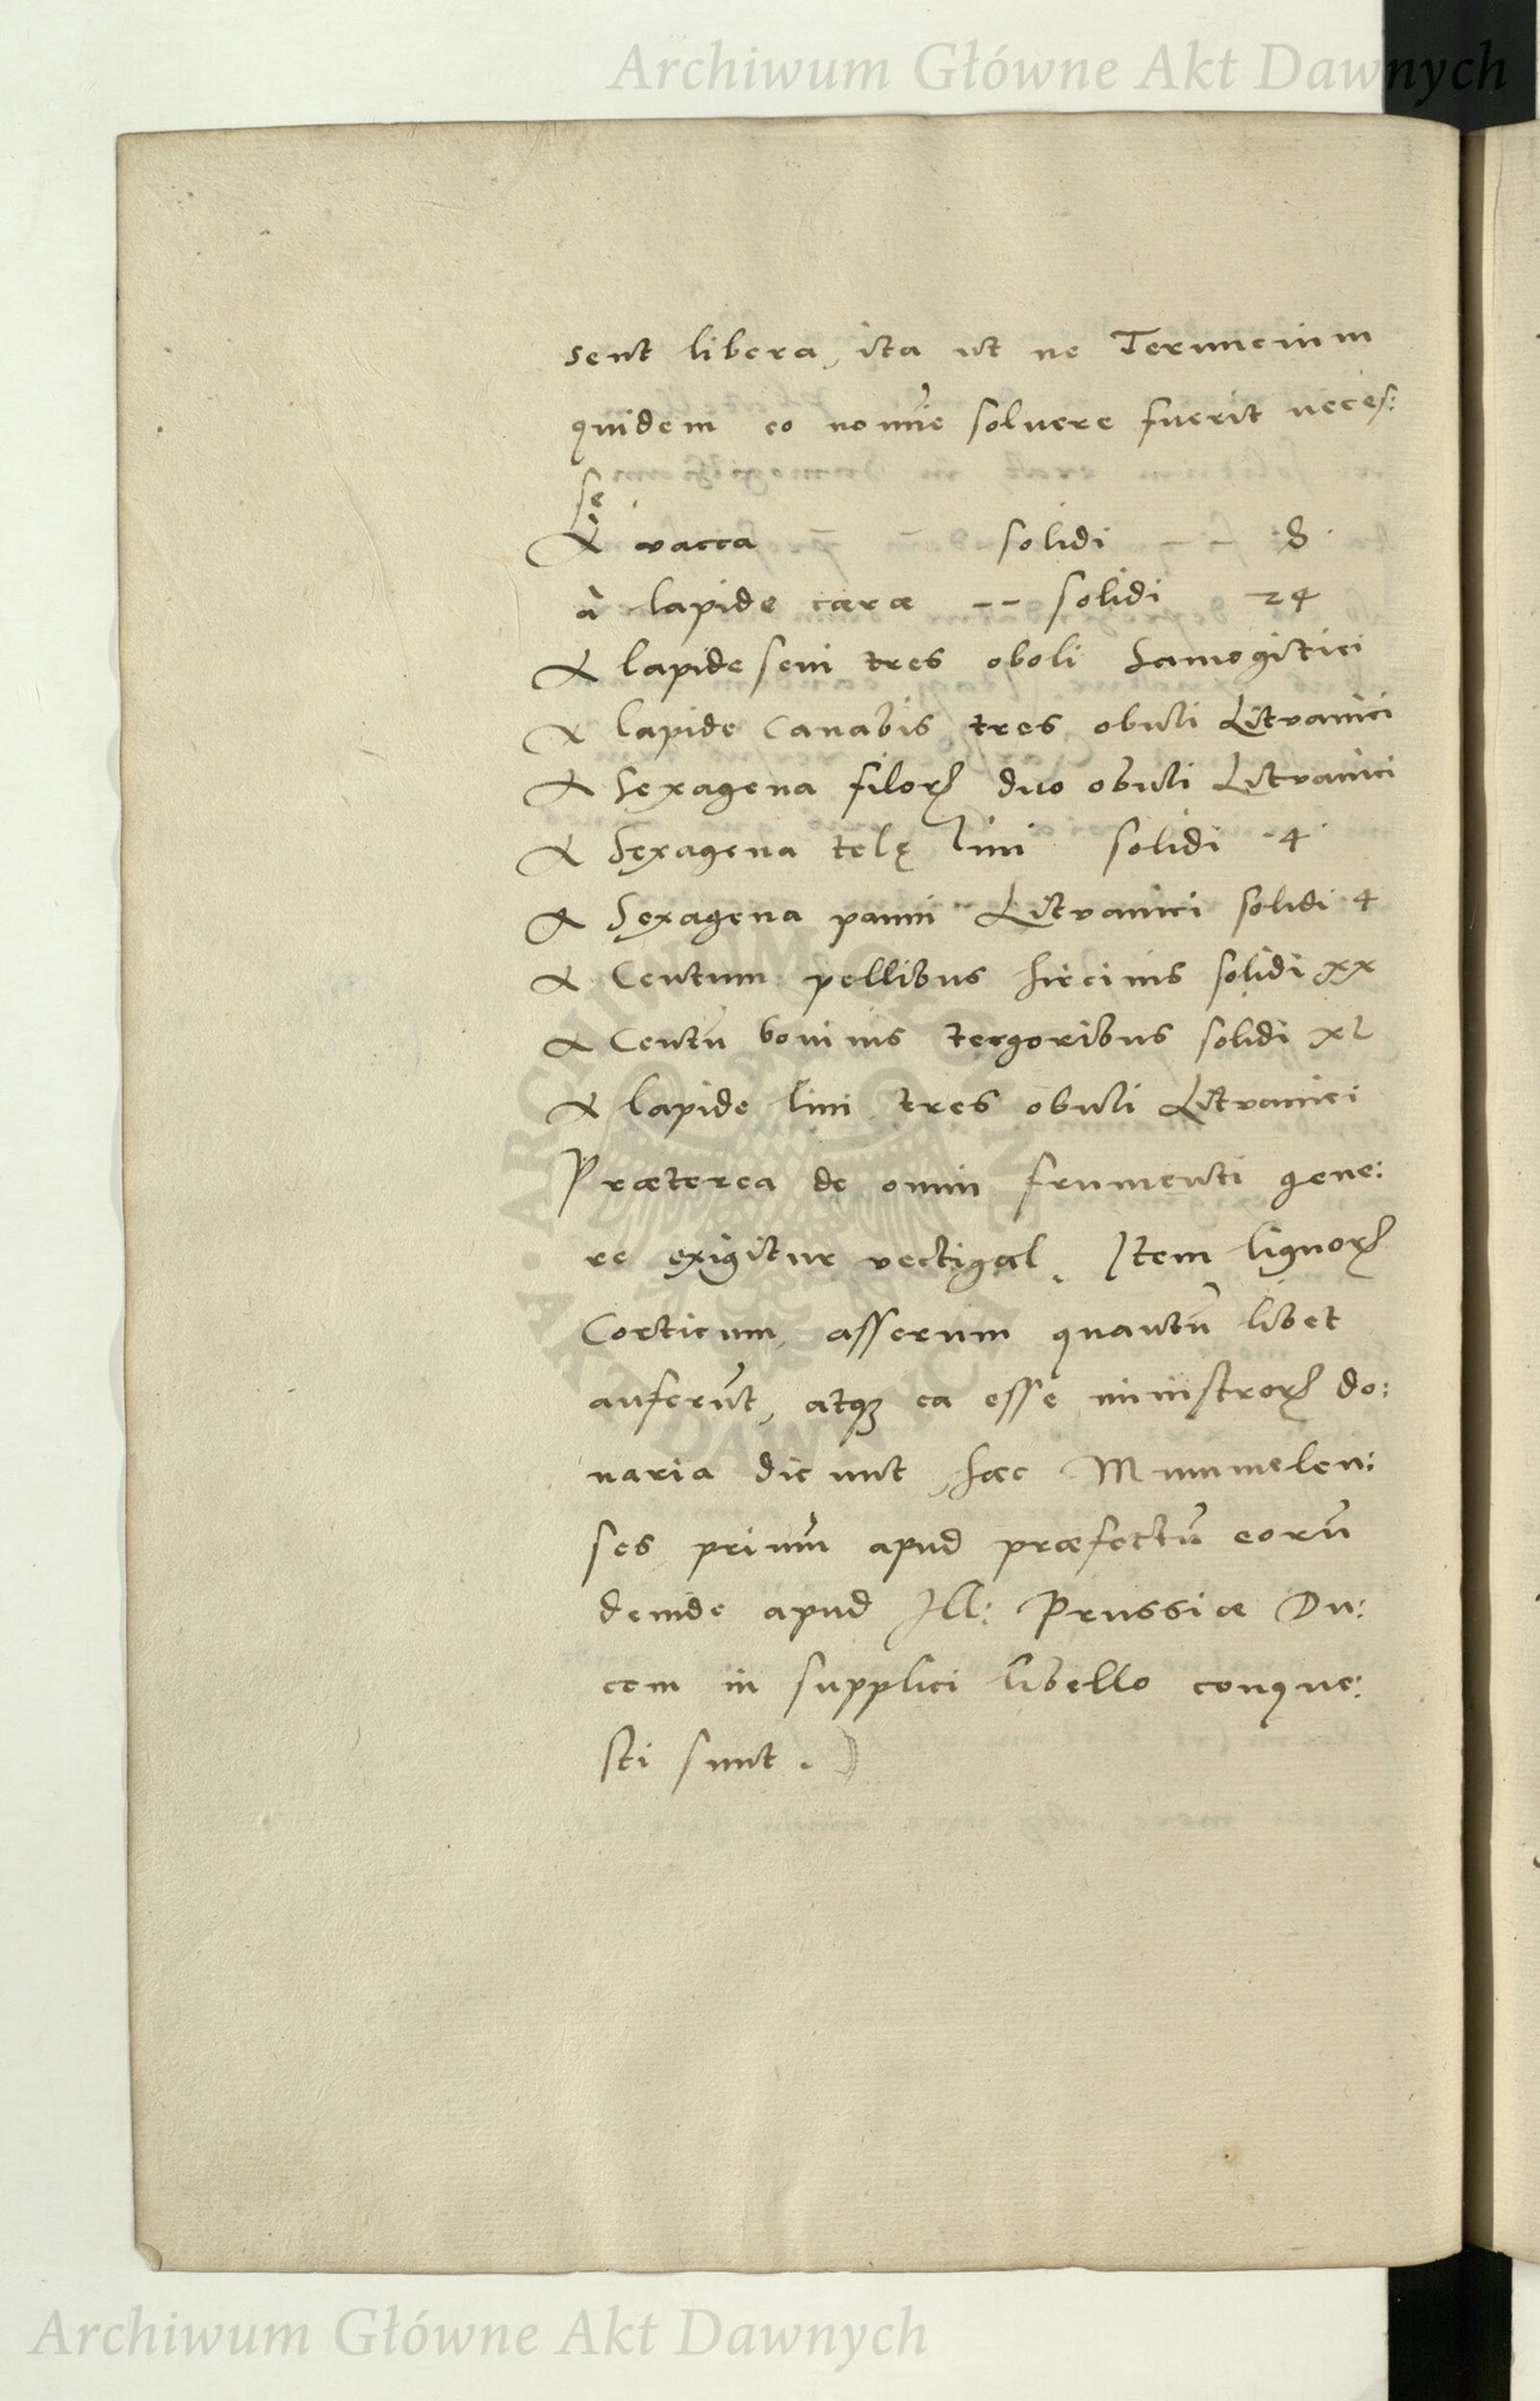 Archiwum Główne Akt Dawnych
sent libera, ita ut ne Teruncium
quidem eo nomīe soluere fuerit neces:
se
A vacca solidi -- 8
à lapide caeræ -- solidi 24
A lapide seui tres oboli Samogitici
A lapide Canabis tres obuli Litvanici
A Sexagena filorꝝ duo obuli Litvanici
A Sexagena telę lini solidi 4
A Sexagena panni Litvanici solidi 4
A Centum pellibus hircinis solidi xx
A Centū bouinis tergoribus solidi xl
A lapide lini tres obuli Litvanici
Præterea de omni frumenti gene:
re exigitur vectigal. Item lignorꝝ
Corticum, asserum quantū libet
auferūt, atqꝫ ea esse ministrorꝝ do:
naria dicunt, hæc Mummelen:
ses primū apud præfectū eorū
deinde apud Ill: Prussiæ Du:
cem in supplici libello conque:
sti sunt.
ARCHIWUM GŁÓWNE AKT DAWNYCH
Archiwum Główne Akt Dawnych